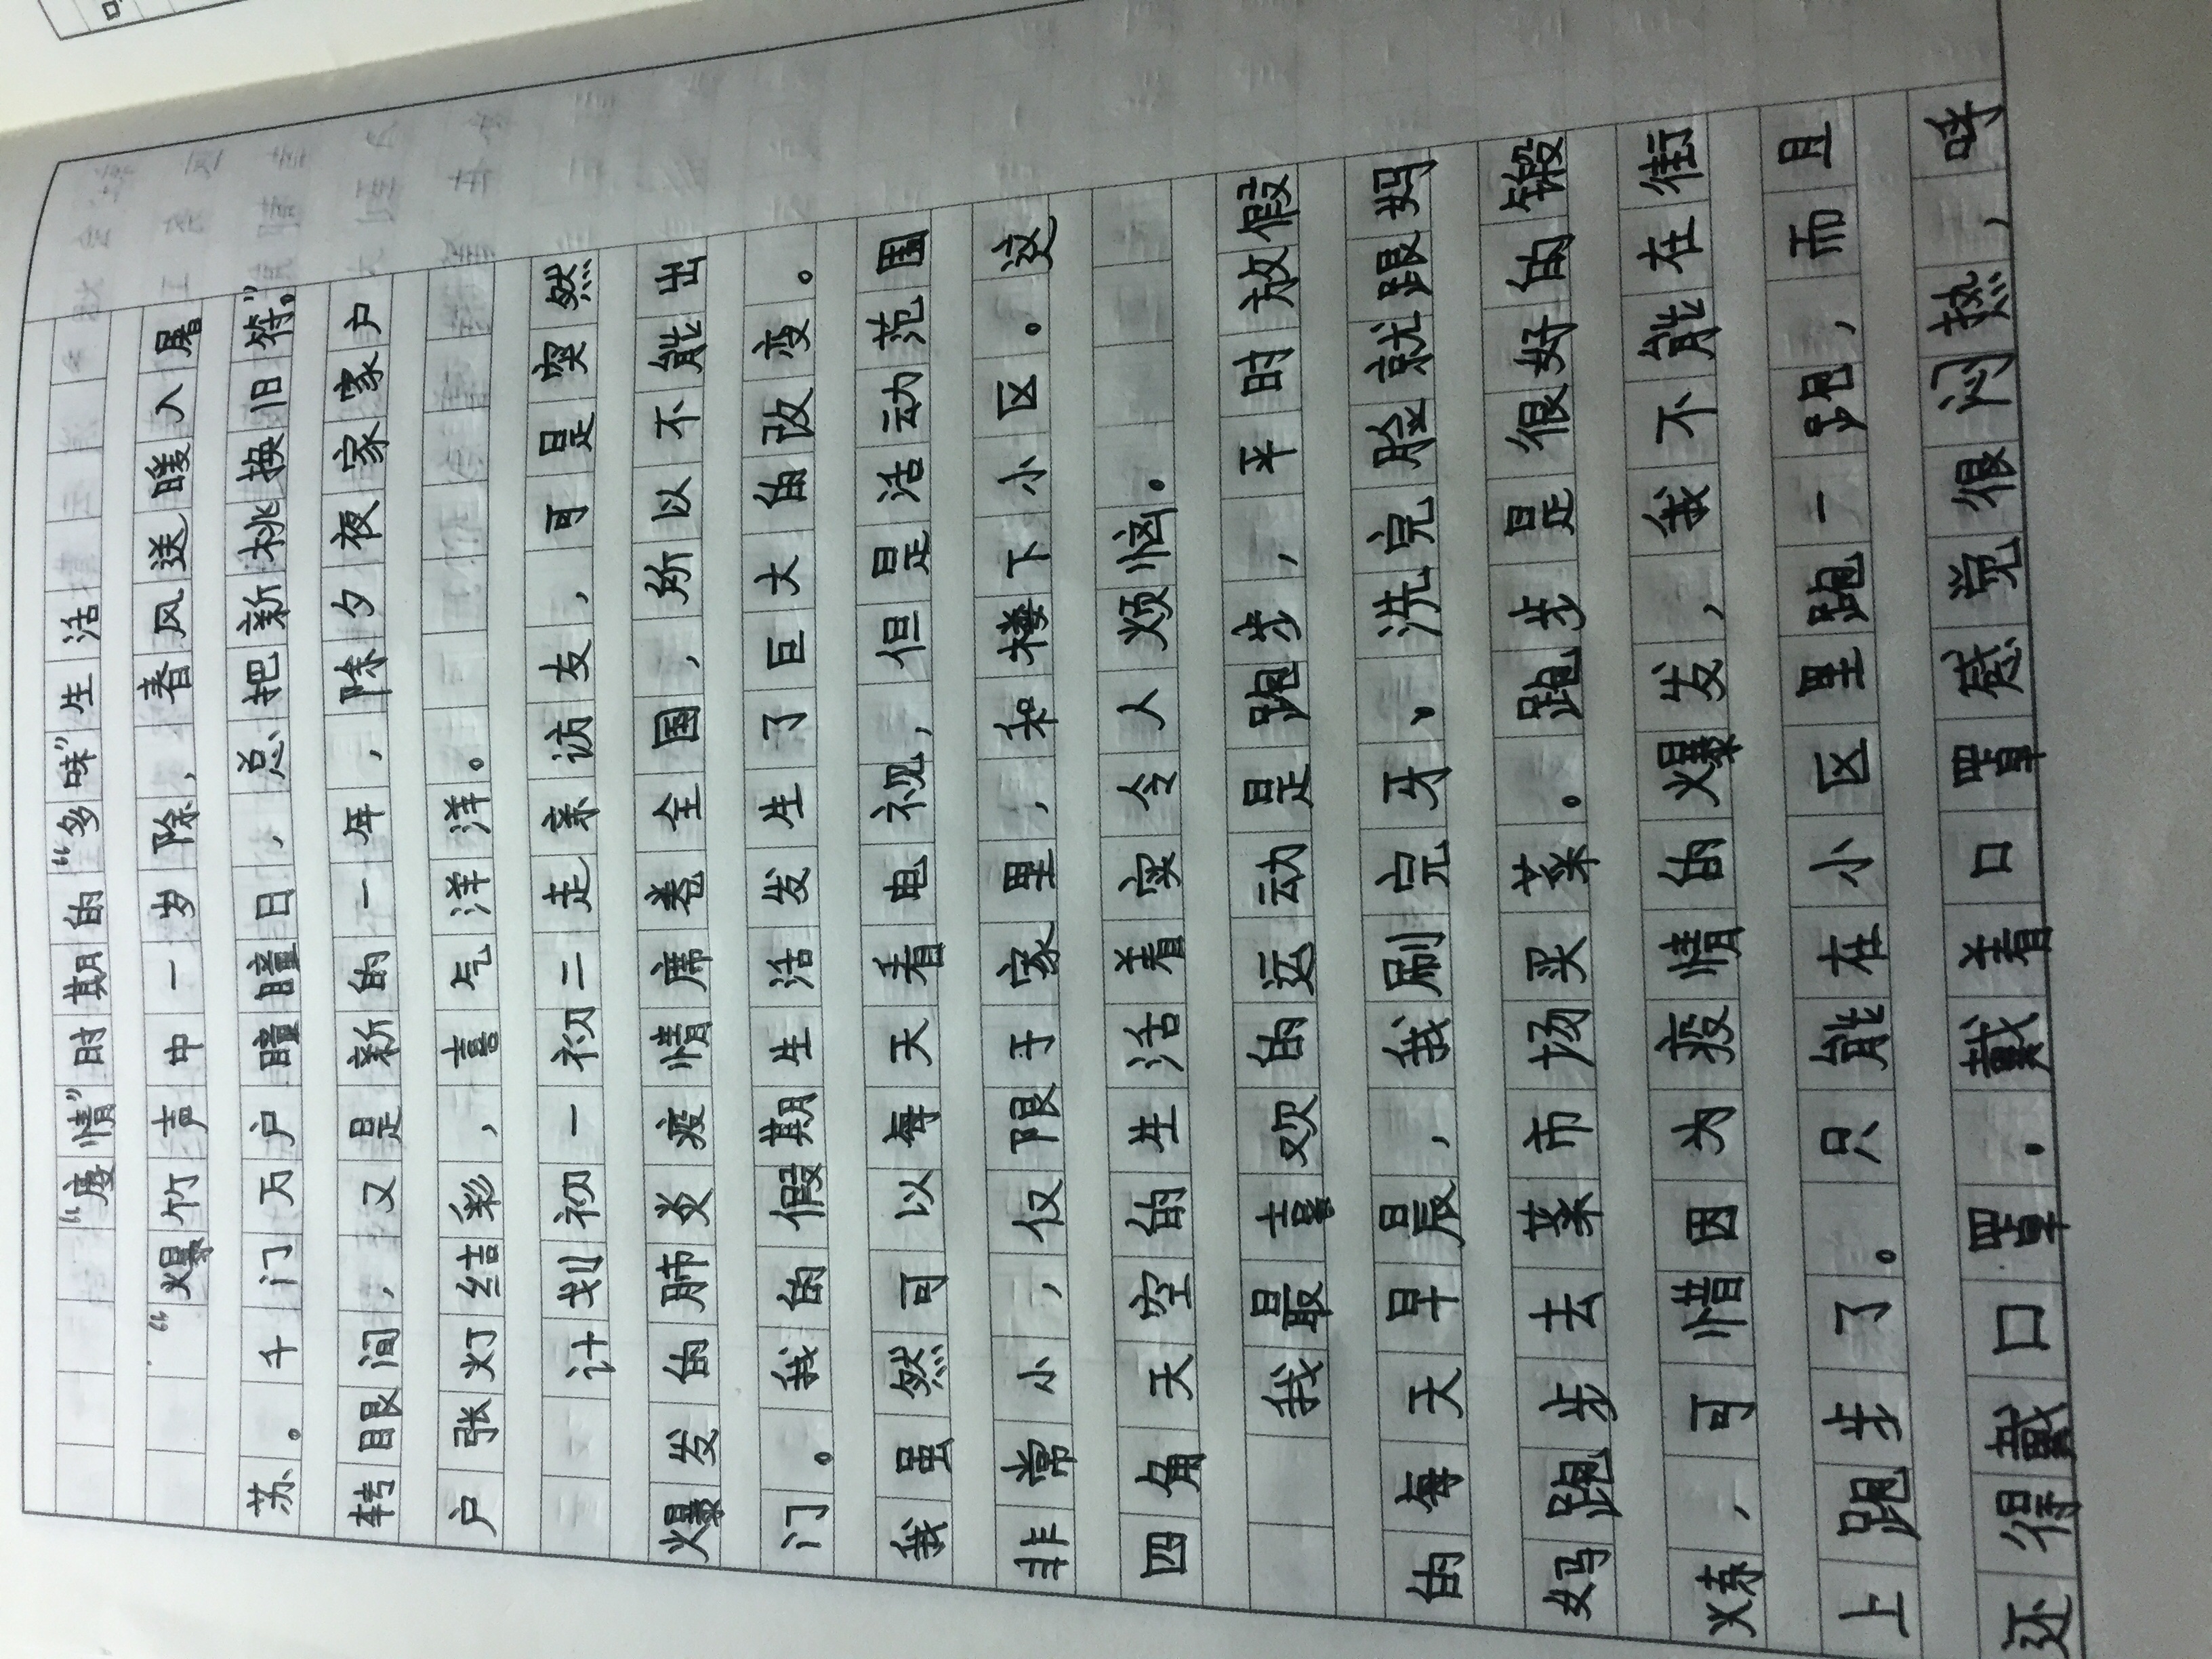 “疫情”时期的“多味”生活
“爆竹声中一岁除，春风送暖入屠
苏。千门万户瞳瞳日，总把新桃换旧符。”
转眼间，又是新的一年，除夕夜家家户
户张灯结彩，喜气洋洋。
计划初一初二走亲访友，可是突然
爆发的肺炎疫情席卷全国，所以不能出
门。我的假期生活发生了巨大的改变。
我虽然可以每天看电视，但是活动范围
非常小，仅限于家里，和楼下小区。这
四角天空的生活着实令人烦恼。
我最喜欢的运动是跑步，平时放假
的每天早晨，我刷完牙、洗完脸就跟妈
妈跑步去菜市场买菜。跑步是很好的锻
炼，可惜因为疫情的爆发，我不能在街
上跑步了。只能在小区里跑一跑，而且
还得戴口罩。戴着口罩感觉很闷热，呼